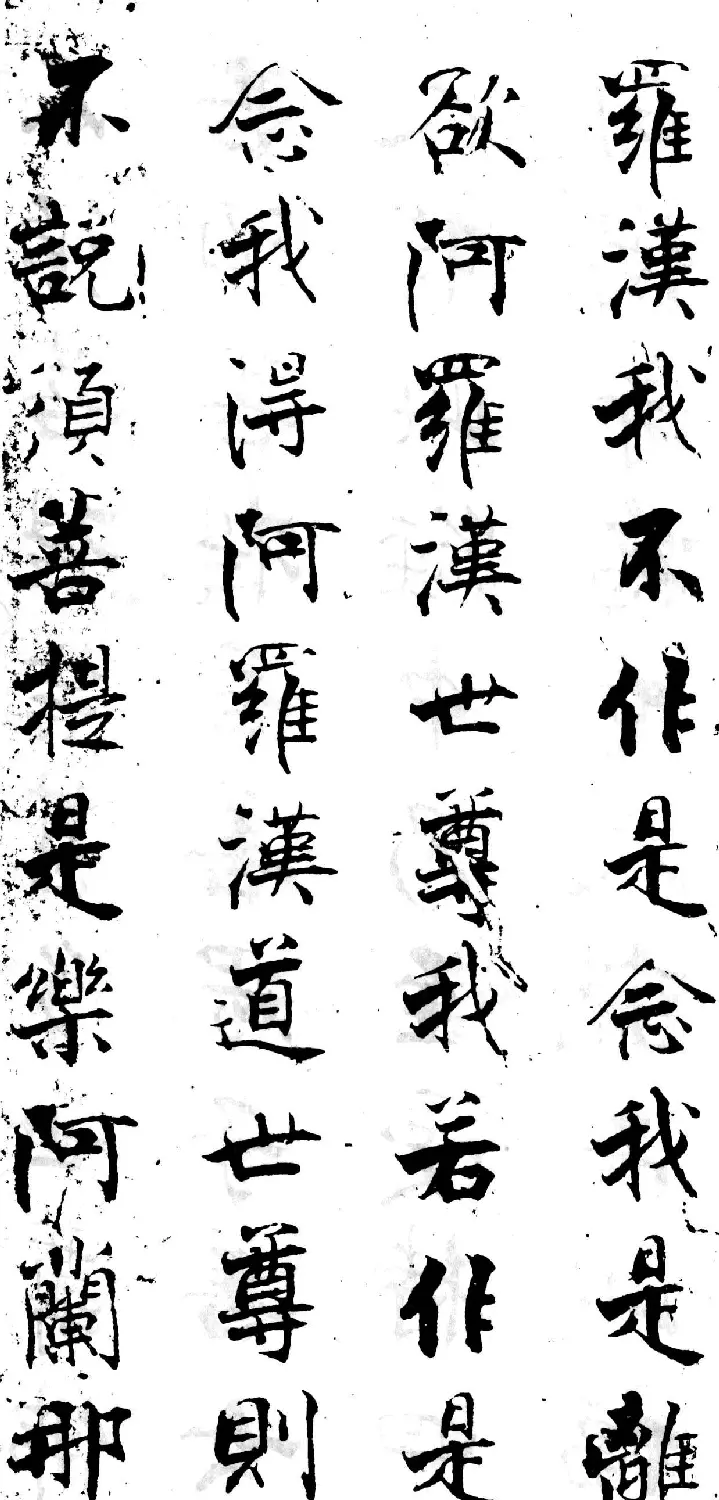 羅漢我不作是念我是離
欲阿羅漢世尊我若作是
念我得阿羅漢道世尊則
不說須菩提是樂阿蘭那